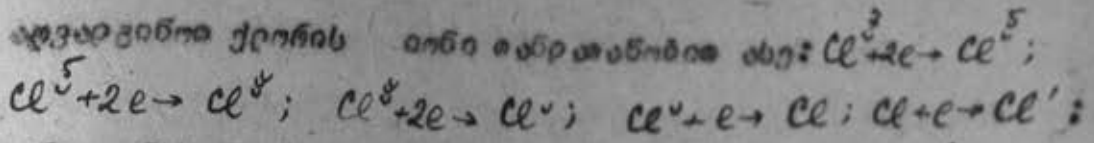 აღვადგინოთ ქლორის იონი თანდათანობით ასე: Cl⁷+2e→ Cl⁵;
Cl⁵+2e→ Cl³; Cl³+2e→ Clᵛ; Clᵛ+e→ Cl; Cl+e→Cl':